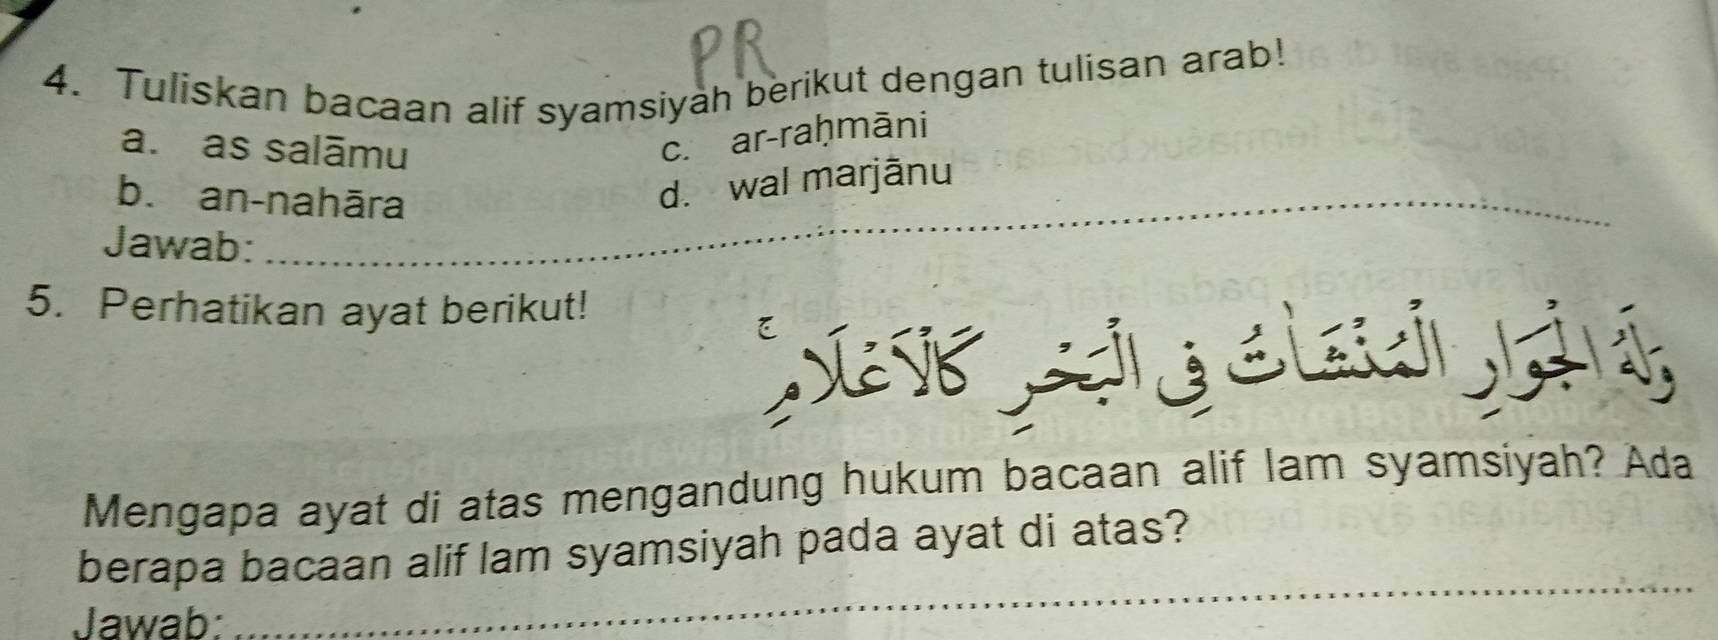 PR
4. Tuliskan bacaan alif syamsiyah berikut dengan tulisan arab!
a. as salāmu
c. ar-raḥmāni
b. an-nahāra
d. wal marjānu
Jawab:
5. Perhatikan ayat berikut!
وَلَهُ الْجَوَارِ الْمُنْشَاٰتُ فِى الْبَحْرِ كَالْاَعْلَامِ ۚ
Mengapa ayat di atas mengandung hukum bacaan alif lam syamsiyah? Ada
berapa bacaan alif lam syamsiyah pada ayat di atas?
Jawab: